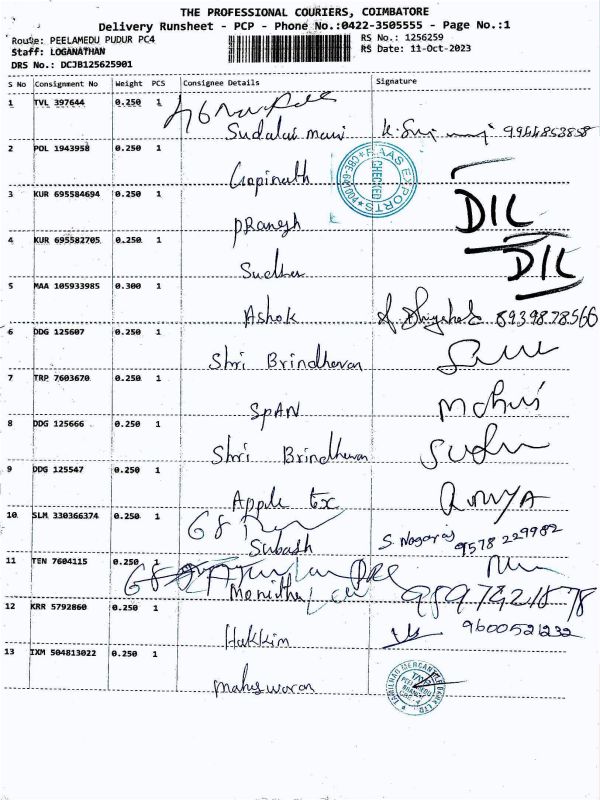 THE PROFESSIONAL COURIERS, COIMBATORE
Delivery Runsheet - PCP - Phone No.:0422-3505555 - Page No.:1
Route: PEELAMEDU PUDUR PC4
RS No.: 1256259
Staff: LOGANATHAN
RS Date: 11-Oct-2023
DRS No.: DCJB125625901
S No Consignment No Weight PCS Consignee Details Signature
1 TVL 397644 0.250 1
Sudalai mani 9944853858
2 POL 1943958 0.250 1
Gopinath
CHECKED
3 KUR 695584694 0.250 1
PRanesh DIL
4 KUR 695582705 0.250 1
Sudha DIL
5 MAA 105933985 0.300 1
Ashok 8939878566
6 DDG 125607 0.250 1
Shri Brindhavan
7 TRP 7603670 0.250 1
SPAN
8 DDG 125666 0.250 1
Shri Brindhavan
9 DDG 125547 0.250 1
Apple Tex
10 SLM 330366374 0.250 1
Subash S. Nagaraj 9578 229982
11 TEN 7604115 0.250 1
12 KRR 5792860 0.250 1
Hakkim 9600521232
13 IXM 504813022 0.250 1
maheswaran